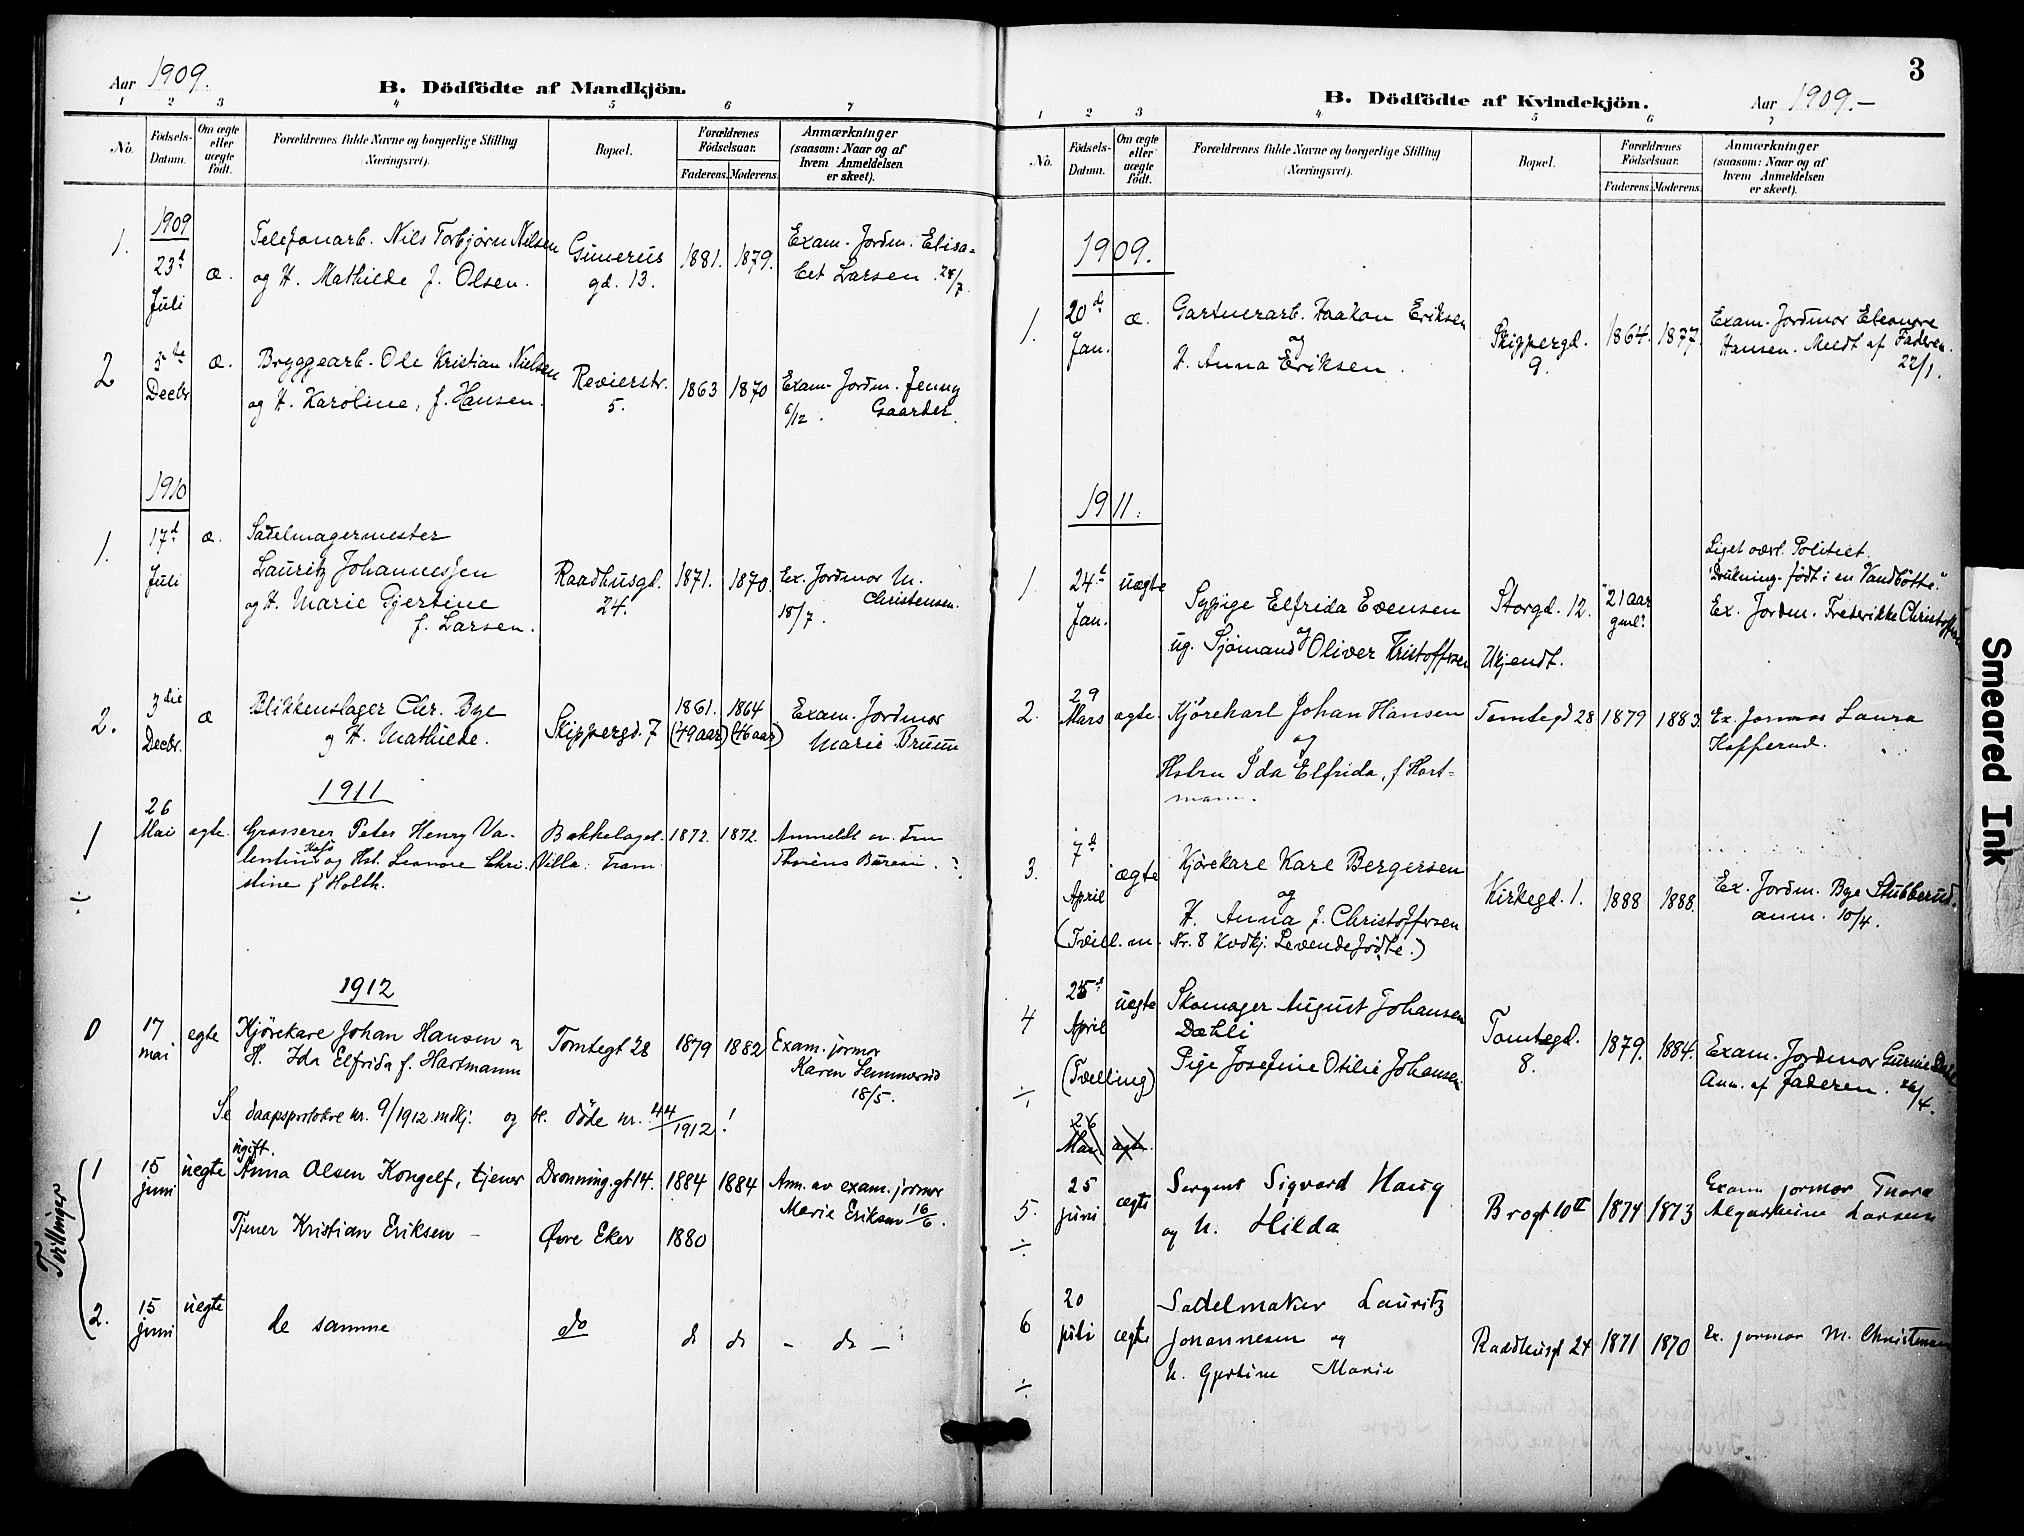 Aar 1909.
B. Dödfödte af Mandkjön.
1 2 3 4 5 6 7
No.
Födsels-Datum.
Om ægte eller uægte födt.
Forældrenes fulde Navne og borgerlige Stilling
(Næringsvei).
Bopæl.
Forældrenes Födselsaar.
Faderens.
Moderens.
Anmærkninger
(saasom: Naar og af
hvem Anmeldelsen
er skeet).
1909
1. 23d Juli æ. Telefonarb. Nils Torbjørn Nilsen
og H. Mathilde f. Olsen.
Gunerus
gd. 13.
1881. 1879.
Exam. Jordm. Elisa=
bet Larsen. 24/7.
2 5te Decbr æ. Bryggearb. Ole Kristian Nielsen
og H. Karoline, f. Hansen.
Revierstr.
5.
1863 1870
Exam. Jordm. Jenny
6/12. Gaarder.
1910
1. 17d Juli æ. Sadelmagermester
Lauritz Johannesjen
og H. Marie Gjertine
f. Larsen.
Raadhusgd.
24.
1871. 1870.
Ex. Jordmor M.
Christensen.
18/7.
2. 3die Decbr. æ Blikkenslager Chr. Bye
og H. Mathilde.
Skippergd. 7
1861. 1864
(49 aar) (46 aar)
Exam. Jordmor
Marie Bruun
1911
1 26 Mai egte. Grosserer Peter Henry Va-
lentin og Hst. Leonore Chri-
stine f Holth.
Bækkelaget.
Villa
1872. 1872.
Anmeldt av
÷
1912
0 17 mai egte Kjørekare Johan Hansen o
H. Ida Elfrida f. Hartmann
Tomtegt 28 1879 1882
Exam. jormor
Karen Lemmerud
18/5.
Se daapsprotokol nr. 9/1912 mdkj. og døde nr. 44/1912!
Tvillinger
ugift.
1 15 juni uegte Anna Olsen Kongelf, tjener
Dronning.gt 14. 1884 1884
Ann. av exam. jormor
Marie Eriksen 16/6.
Tjener Kristian Eriksen –
Øvre Eker 1880
2. 15 juni uegte de samme do d d – d –
3
B. Dödfödte af Kvindekjön.
Aar 1909.–
1 2 3 4 5 6 7
No.
Födsels-Datum.
Om ægte eller uægte födt.
Forældrenes fulde Navne og borgerlige Stilling
(Næringsvei).
Bopæl.
Forældrenes Födselsaar.
Faderens.
Moderens.
Anmærkninger
(saasom: Naar og af
hvem Anmeldelsen
er skeet).
1909.
1. 20de Jan. æ. Gartnerarb. Haakon Eriksen
og
H. Anna Eriksen.
Skippergd.
9.
1864. 1877.
Exam. Jordmor Eleonore
Hansen. Meldt af Faderen.
22/1.
1911.
1 24de Jan. uægte Sypige Elfrida Evensen
og
ug. Sjømand Oliver Kristoffersen
Storgd. 12.
Ukjendt.
"21 aar
gml"
Liget overl. Politiet.
"Drukning-født i en Vandbøtte."
Ex. Jordm. Frederikke Christoffersen
2. 29 Mars ægte. Kjørekarl Johan Hansen
og
Hstru Ida Elfrida, f Hart=
mann.
Tomtegd 28 1879 1883
Ex. jormor Laura
Kofferud.
3. 7d April ægte Kjørekare Kare Bergersen
og
H. Anna f. Christoffersen
(Tvill. m. Nr. 8 Kvdkj. Levendefødte.)
Kirkegd. 1. 1888 1888.
Ex. Jordm. Bye Stubberud.
anm. 10/4.
4 25d April uægte Skomager August Johansen
Dæhli
Pige Josefine Otilie Johansen
(Tvelling)
Tomtegd.
8.
1879. 1884.
Exam. Jordmor Gurine Dahl
Anm. af Faderen. 26/4.
÷
26 Mai ægte.
5. 25 juni ægte Sergent Sigvard Haug
og H. Hilda
Brogt 10 II 1874 1873
Exam jormor Thora
Larsen
÷
6 20 juli ægte Sadelmaker Lauritz
Johannesen og
H. Gjertine Marie
Raadhusgt 24 1871 1870
Ex. jormor M. Christensen
÷
Smeared Ink